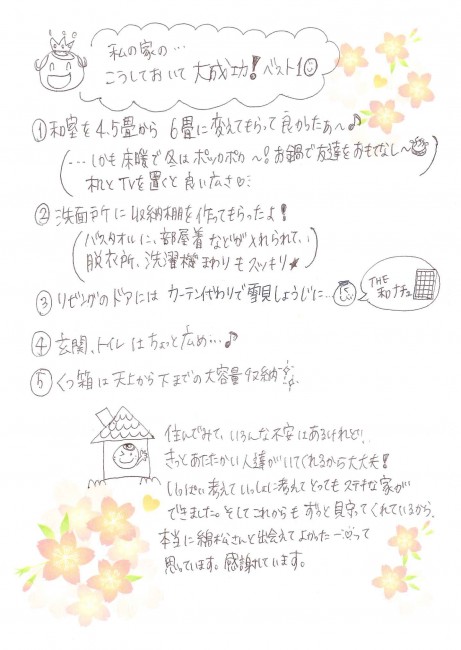 私の家の…
こうしておいて 大成功! ベスト10
① 和室を4.5畳から 6畳に変えてもらって良かったぁ〜♪
(…しかも床暖で冬はポッカポカ〜!お鍋で友達をおもてなし〜
机とTVを置くと良い広さ♡…)
② 洗面所に収納棚を作ってもらったよ!
(バスタオルに、部屋着などが入れられて、、
脱衣所、洗濯機まわりもスッキリ★)
③ リビングのドアには カーテン代わりで雪見しょうじに…
THE
和ナチュ
④ 玄関、トイレはちょっと広め…♪
⑤ くつ箱は天上から下までの大容量収納?
住んでみて、いろんな不安はあるけれど!
きっとあたたかい人達がいてくれるから大丈夫!
いっぱい考えていっしょに考えてとってもステキな家が
できました。そしてこれからもずっと見守ってくれているから、
本当に綿松さんと出会えてよかったー♡って
思っています。感謝しています。